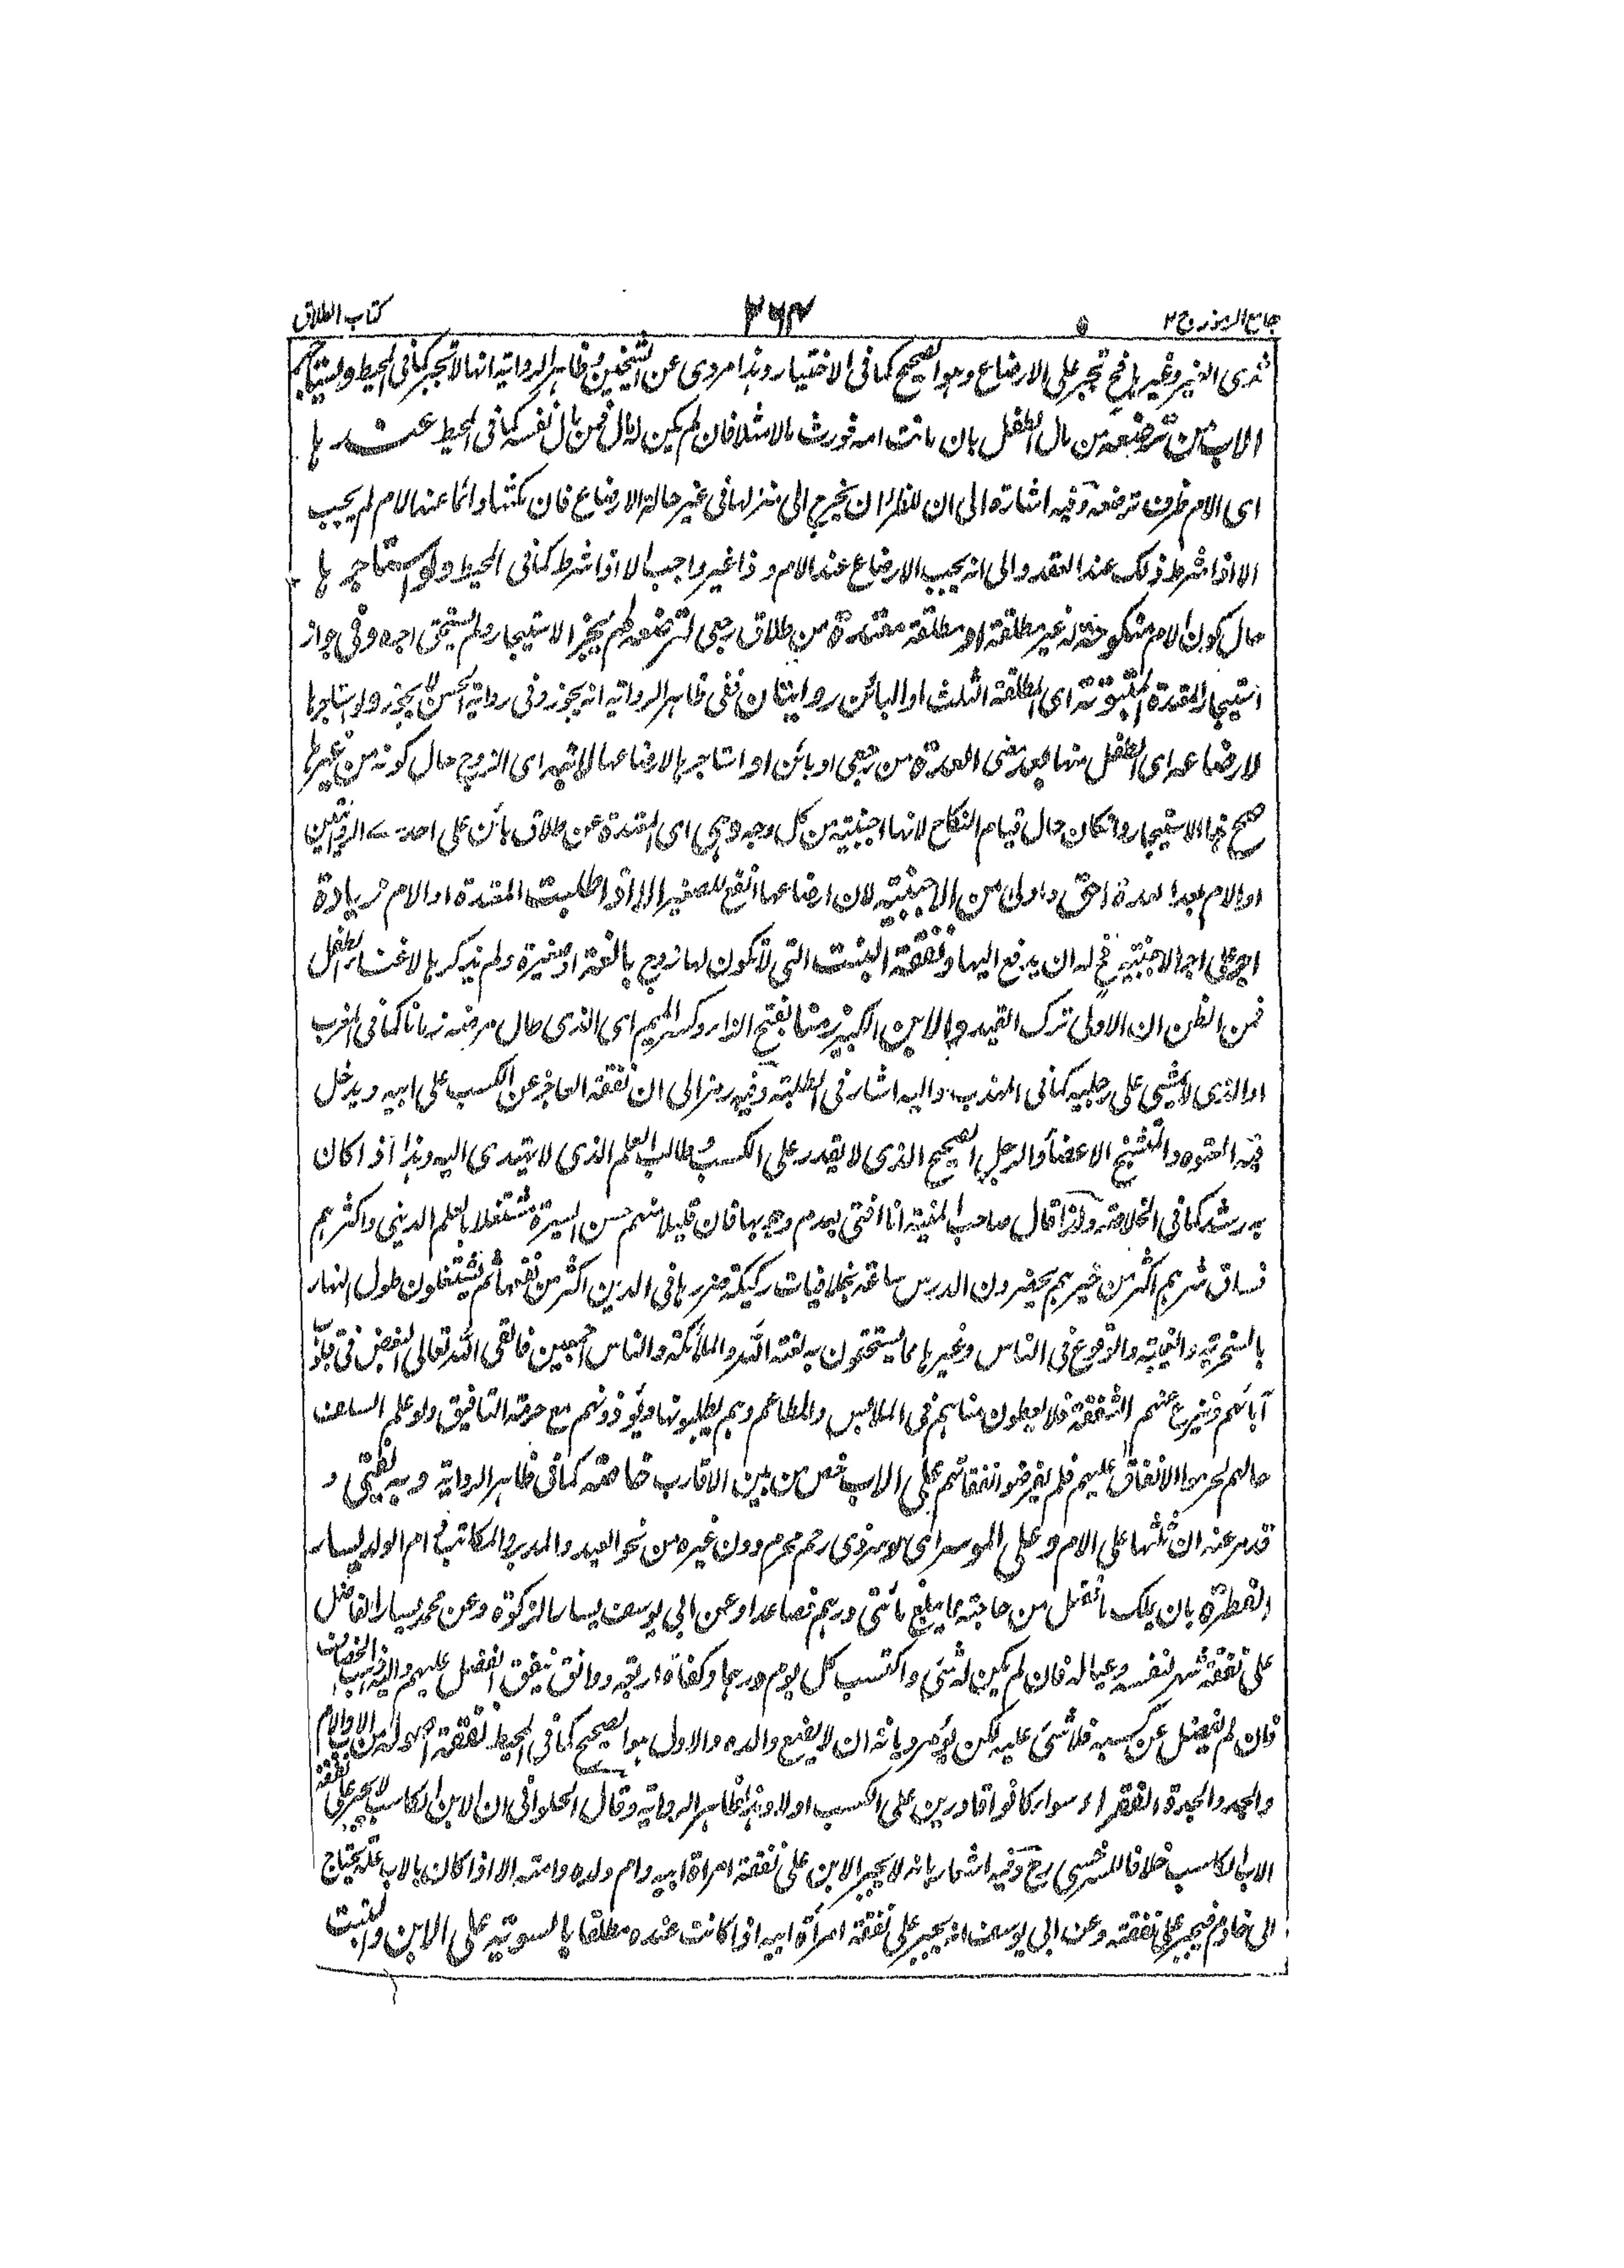 جامع الرموز ج ٢
٣٦٤
كتاب الطلاق
ثدى الغير وغيرها فح تجبر على الارضاع وهو الصحيح كما فى الاختيار وهذا مروى عن الشيخين وظاهر الرواية انها لا تجبر كما فى المحيط ويستاجر
الاب من ترضعه من مال الطفل بان ماتت امه فورث مالا مثلا فان لم يكن له مال فمن مال نفسه كما فى المحيط عندها
اى الام ظرف ترضعه وفيه اشارة الى ان للظئر ان يخرج الى منزلها فى غير حالة الارضاع فان مكثها دائما عند الام لم يجب
الا اذا شرط ذلك عند العقد والى انه يجب الارضاع عند الام وذا غير واجب الا اذا شرط كما فى المحيط ولو استاجرها
حال كون الام منكوحة له غير مطلقة او مطلقة معتدة من طلاق رجعى لترضعه لم يجز الاستيجار ولم يستحق اجره وفى جواز
استيجار المعتدة المبتوتة اى المطلقة الثلث او البائن روايتان ففى ظاهر الرواية انه يجوز وفى رواية الحسن لا يجوز ولو استاجرها
لارضاعه اى الطفل منها بعد مضى العدة من رجعى او بائن او استاجرها لارضاعها لابنه اى الزوج حال كونه من غيرها
صح هذا الاستيجار وان كان حال قيام النكاح لانها اجنبية من كل وجه وهى اى المعتدة عن طلاق بائن على احدى الروايتين
او الام بعد العدة احق واولى من الاجنبية لان ارضاعها انفع للصغير الا اذا طلبت المعتدة او الام زيادة
اجر على اجر الاجنبية فح له ان يدفع اليها ونفقة البنت التى لا تكون لها زوج بالغة او صغيرة ولم يذكرها لاغناء الطفل
فمن الظن ان الاولى ترك القيد والابن الكبير زمنا بفتح الزاء وكسر الميم اى الذى طال مرضه زمانا كما فى المغرب
او الذى لا يمشى على رجليه كما فى المهذب واليه اشار فى الطلبة وفيه رمز الى ان نفقة العاجز عن الكسب على ابيه ويدخل
فيه المعتوه والمتشنج الاعضاء والرجل الصحيح الذى لا يقدر على الكسب وطالب العلم الذى لا يهتدى اليه وهذا اذا كان
به رشد كما فى الخلاصة ولذا قال صاحب المنية انا افتى بعدم وجوبها فان قليلا منهم حسن السيرة مشتغلا بالعلم الدينى واكثرهم
فساق شرهم اكثر من خيرهم يحضرون الدرس ساعة بخلافيات ركيكة ضررها فى الدين اكثر من نفعها ثم يشتغلون طول النهار
بالسخرية والغيبة والوقوع فى الناس وغيرها مما يستحقون به لعنة الله والملائكة والناس اجمعين فالقى الله تعالى البغض فى قلوب
آبائهم وينزع عنهم الشفقة فلا يعطون مناهم فى الملابس والمطاعم وهم يطلبونها ويؤذونهم مع حرمة التافيف ولو علم السلف
حالهم لحرموا الانفاق عليهم فلم يفرضوا نفقاتهم على الاب خص من بين الاقارب خاصة كما فى ظاهر الرواية وبه يفتى و
قد مر عنه ان ثلثها على الام وعلى الموسر اى لا سر ذى رحم محرم دون غيره من نحو العبد والمدبر والمكاتب وام الولد يسار
الفطرة بان يملك ما فضل من حاجته مما يبلغ مائتى درهم فصاعدا وعن ابى يوسف يسار الزكوة وعن محمد يسار الفاضل
على نفقة شهر لنفسه وعياله فان لم يكن له شئ واكتسب كل يوم درهما وكفاه اربعة دوانق ينفق الفضل عليهم واليه ذهب الخصاف
فان لم يفضل عن كسبه فلا شئ عليه لكن يؤمر ديانة ان لا يضيع والده والاول هو الصحيح كما فى المحيط نفقة اصوله من الاب والام
والجد والجدة الفقراء سواء كانوا قادرين على الكسب او لا وهذا ظاهر الرواية وقال الحلوانى ان الابن الكاسب لا يجبر على نفقة
الاب الكاسب خلافا للسرخسى رح وفيه اشعار بانه لا يجبر الابن على نفقة امراة ابيه وام ولده وامته الا اذا كان بالاب علة يحتاج
الى خادم فيجبر على نفقته وعن ابى يوسف انه يجبر على نفقة امرأة ابيه اذا كانت عنده مطلقا بالسوية على الابن والبنت